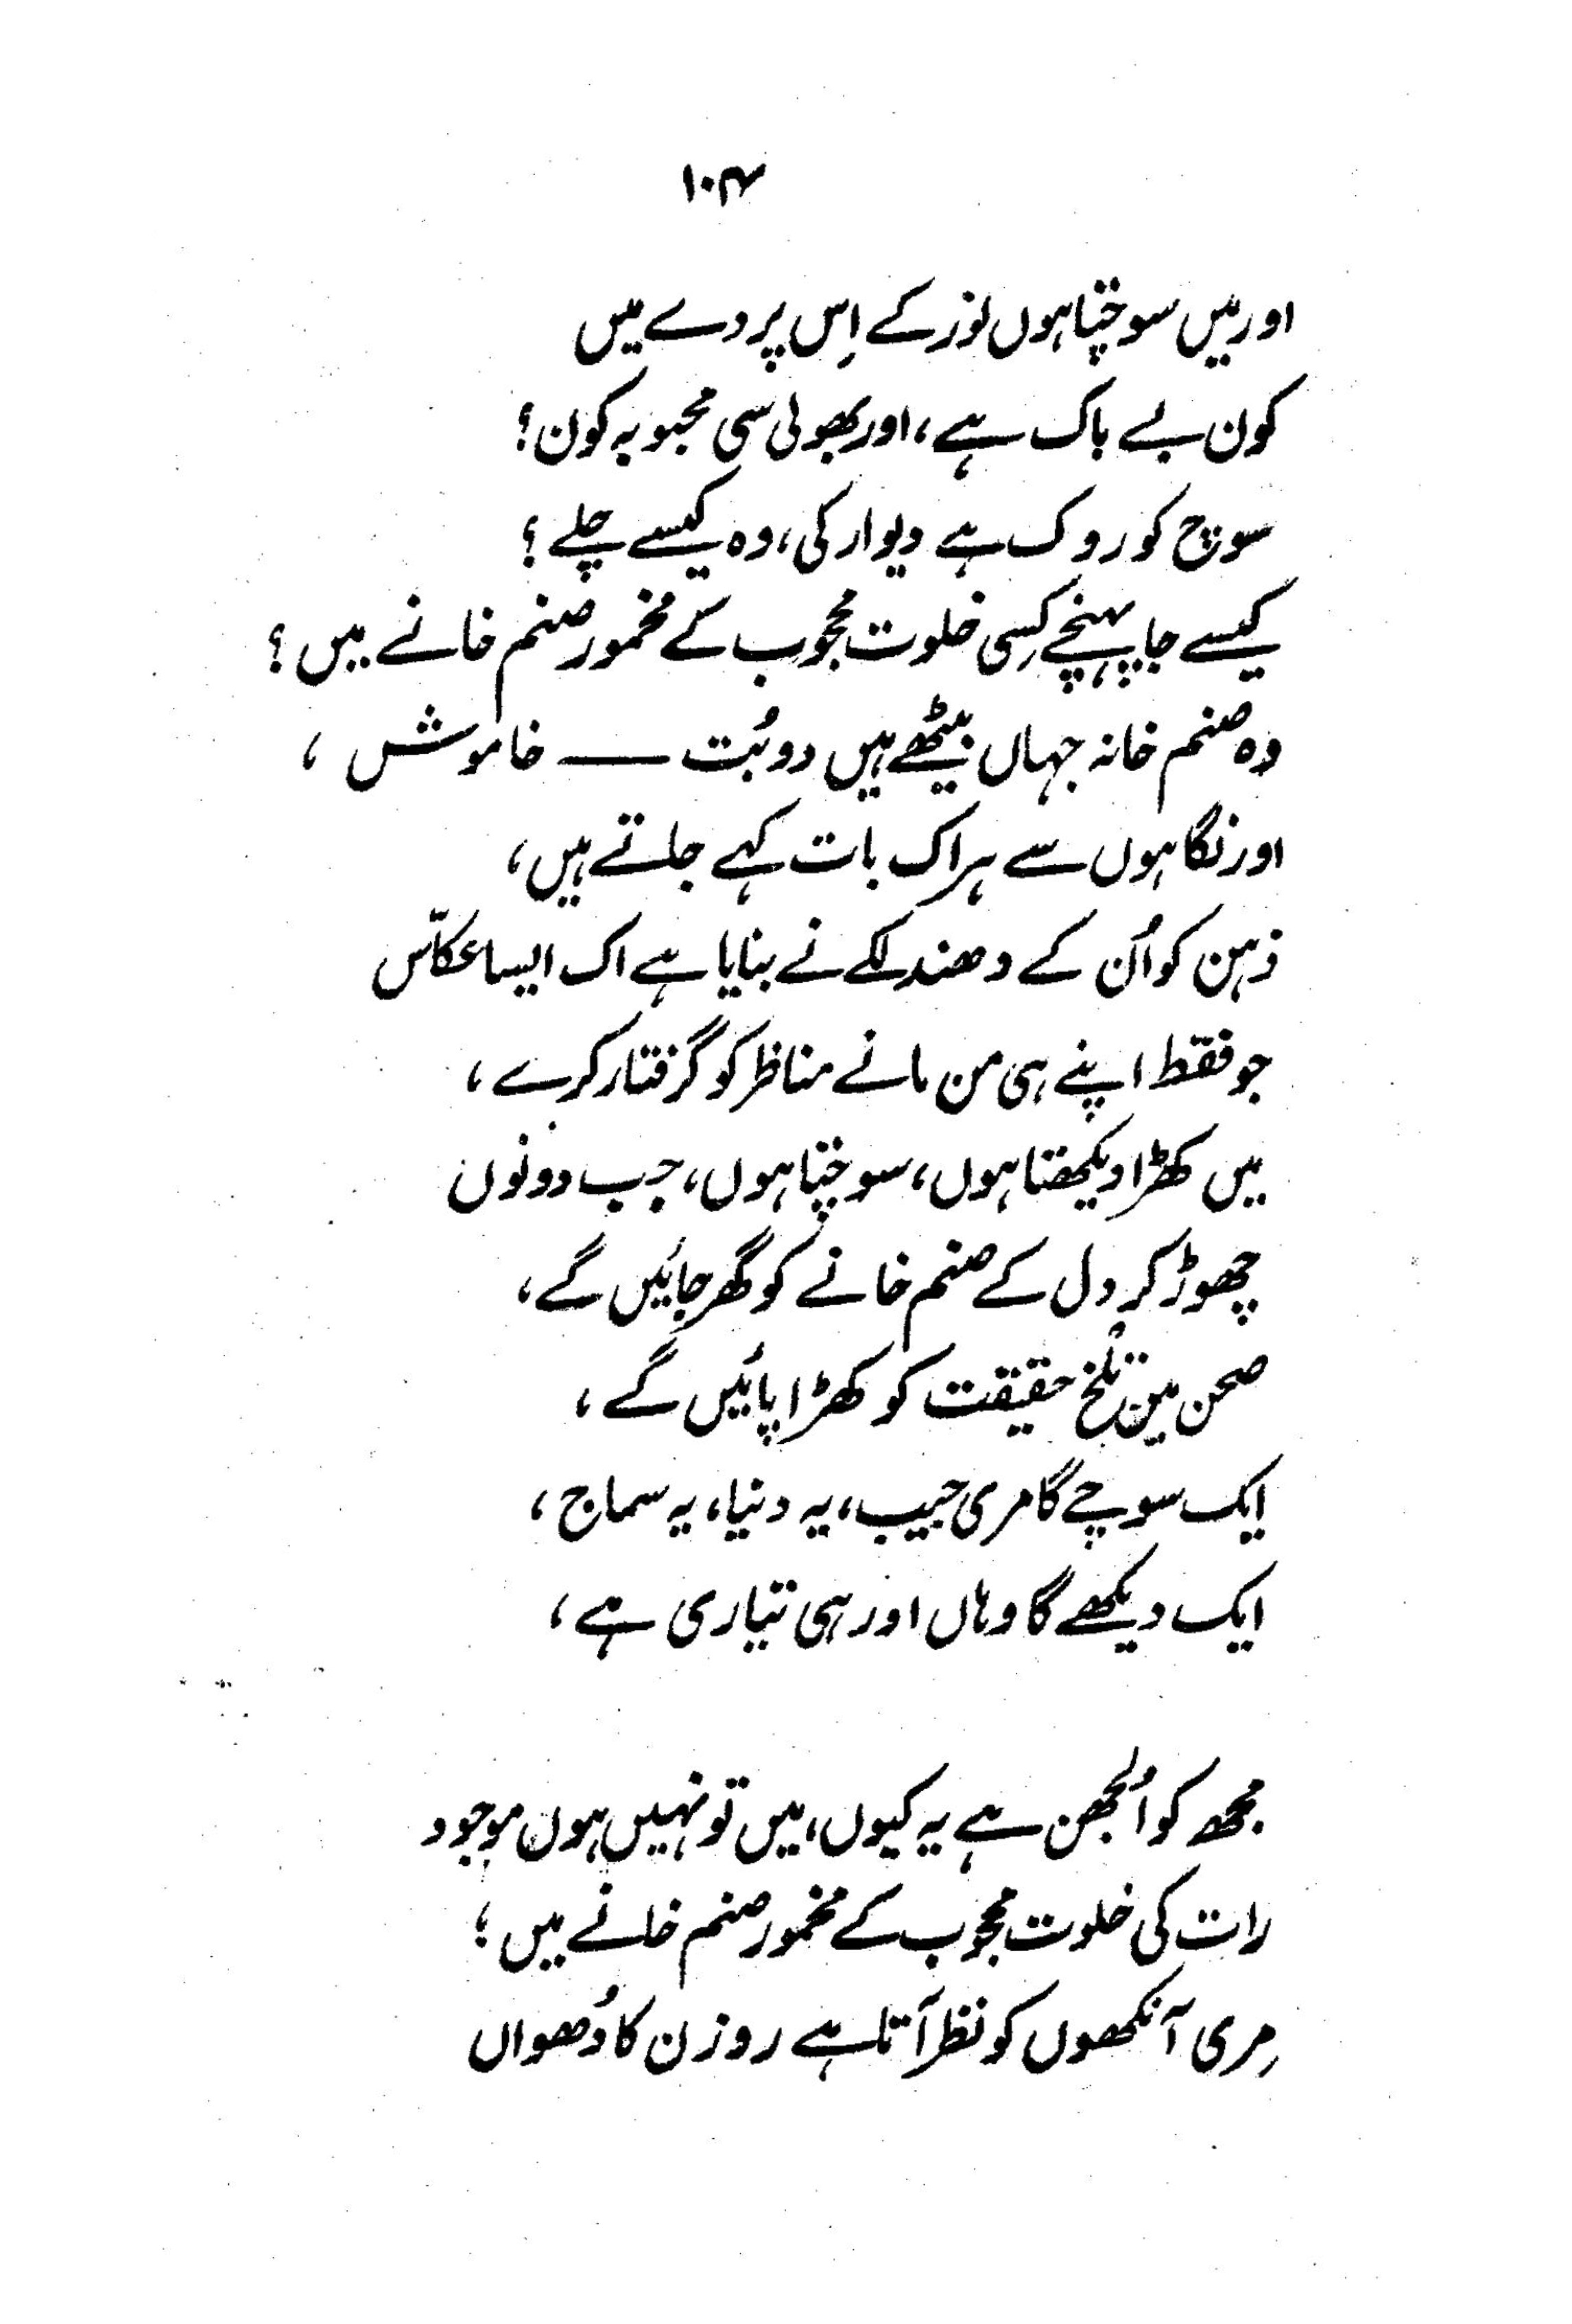 ۱۰۴
اور میں سوچتا ہوں نور کے اِس پردے میں
کون بے باک ہے، اور بھولی سی محبوبہ کون؟
سوچ کو روک ہے دیوار کی، وہ کیسے چلے؟
کیسے جا پہنچے کِسی خلوت محجوب کے مخمور صنم خانے میں؟
وہ صنم خانہ جہاں بیٹھے ہیں دو بُت — خاموش،
اور نگاہوں سے ہر اک بات کہے جاتے ہیں،
ذہن کو اُن کے دھندلکے نے بنایا ہے اک ایسا عکّاس
جو فقط اپنے ہی من مانے مناظر کو گرفتار کرے،
میں کھڑا دیکھتا ہوں، سوچتا ہوں، جب دونوں
چھوڑ کر دل کے صنم خانے کو گھر جائیں گے،
صحن میں تلخ حقیقت کو کھڑا پائیں گے،
ایک سوچے گا مری جیب، یہ دنیا، یہ سماج،
ایک دیکھے گا وہاں اور ہی تیاری ہے،
مجھ کو اُلجھن ہے یہ کیوں، میں تو نہیں ہوں موجود
رات کی خلوت محجوب کے مخمور صنم خانے میں؛
مِری آنکھوں کو نظر آتا ہے روزن کا دُھواں